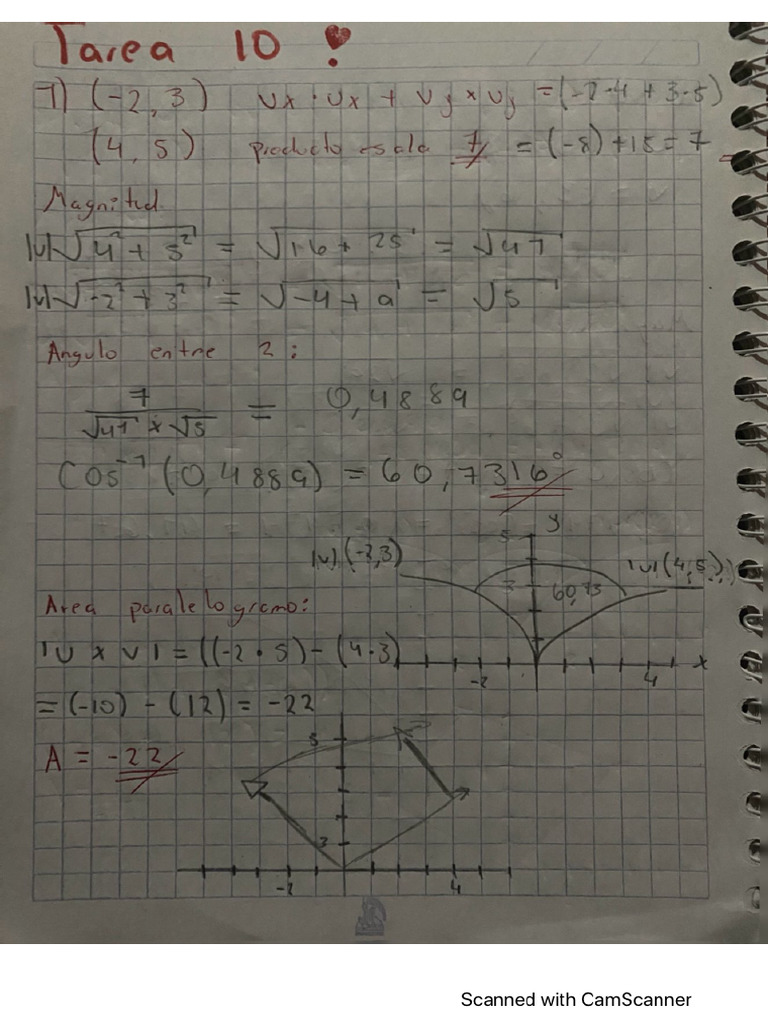 Tarea 10 !
1) (-2, 3) Ux · Ux + Vy × Uy = (-2·4 + 3·5)
(4, 5) producto escala 7 = (-8) + 15 = 7
Magnitud
|u|√4² + 5² = √16 + 25 = √41
|v|√-2² + 3² = √-4 + 9 = √5
Angulo entre 2:
7
√41 × √5 = 0,4889
Cos⁻¹ (0,4889) = 60,7316°
y
5
|v| (-2,3)
|u| (4,5)
3
60,73
-2
4
x
Area paralelogramo:
|U × V| = ((-2 · 5) - (4·3)
= (-10) - (12) = -22
A = -22
5
3
-2
4
Scanned with CamScanner